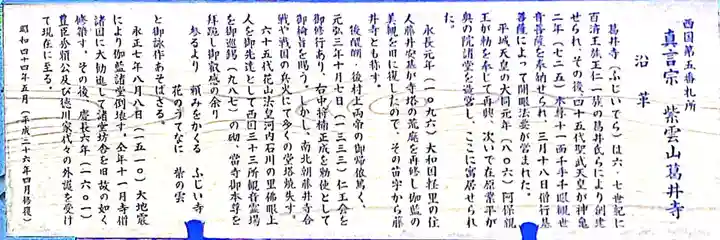 西国第五番札所
真言宗 紫雲山葛井寺
沿革
葛井寺(ふじいでら)は六・七世紀に
百済王族王仁一族の葛井氏らにより創建
せられ、その後四十五代聖武天皇が神亀
二年(七二五)本尊十一面千手千眼観世
音菩薩を奉納せられ、三月十八日僧行基
菩薩によって開眼法要が営まれた。
平城天皇の大同元年(八〇六)阿保親
王が勅を奉じて再興、次いで在原業平が
奥の院諸堂を造営し、ここに寓居せられ
た。
永長元年(一〇九六)大和国軽里の住
人藤井安基が寺塔の荒廃を再修し伽藍の
美観を旧に復したので、その苗字から藤
井寺とも称す。
後醍醐、後村上両帝の御帰依篤く、
元弘三年十月七日(一三三三)仁王会を
御修行あり、右中将楠正成を勅使として
御綸旨を賜う。しかし、南北朝藤井寺合
戦や戦国の兵火にて多くの堂塔焼失す。
六十五代花山法皇河内石川の里佛眼上
人を御先達として西国三十三所観音霊場
を御巡錫(九八七)の砌 当寺御本尊を
拝跪し御敬感の余り
参るより 頼みをかくる ふじい寺
花のうてなに 紫の雲
と御詠作あそばさる。
永正七年八月八日(一五一〇)大地震
により伽藍諸堂倒壊す。仝年十一月寺僧
諸国に大勧進して諸堂坊舎を旧故の如く
修築す。その後、慶長六年(一六〇一)
豊臣秀頼公及び徳川家代々の外護を受け
て現在に至る。
昭和四十四年五月(平成二十六年四月修復)